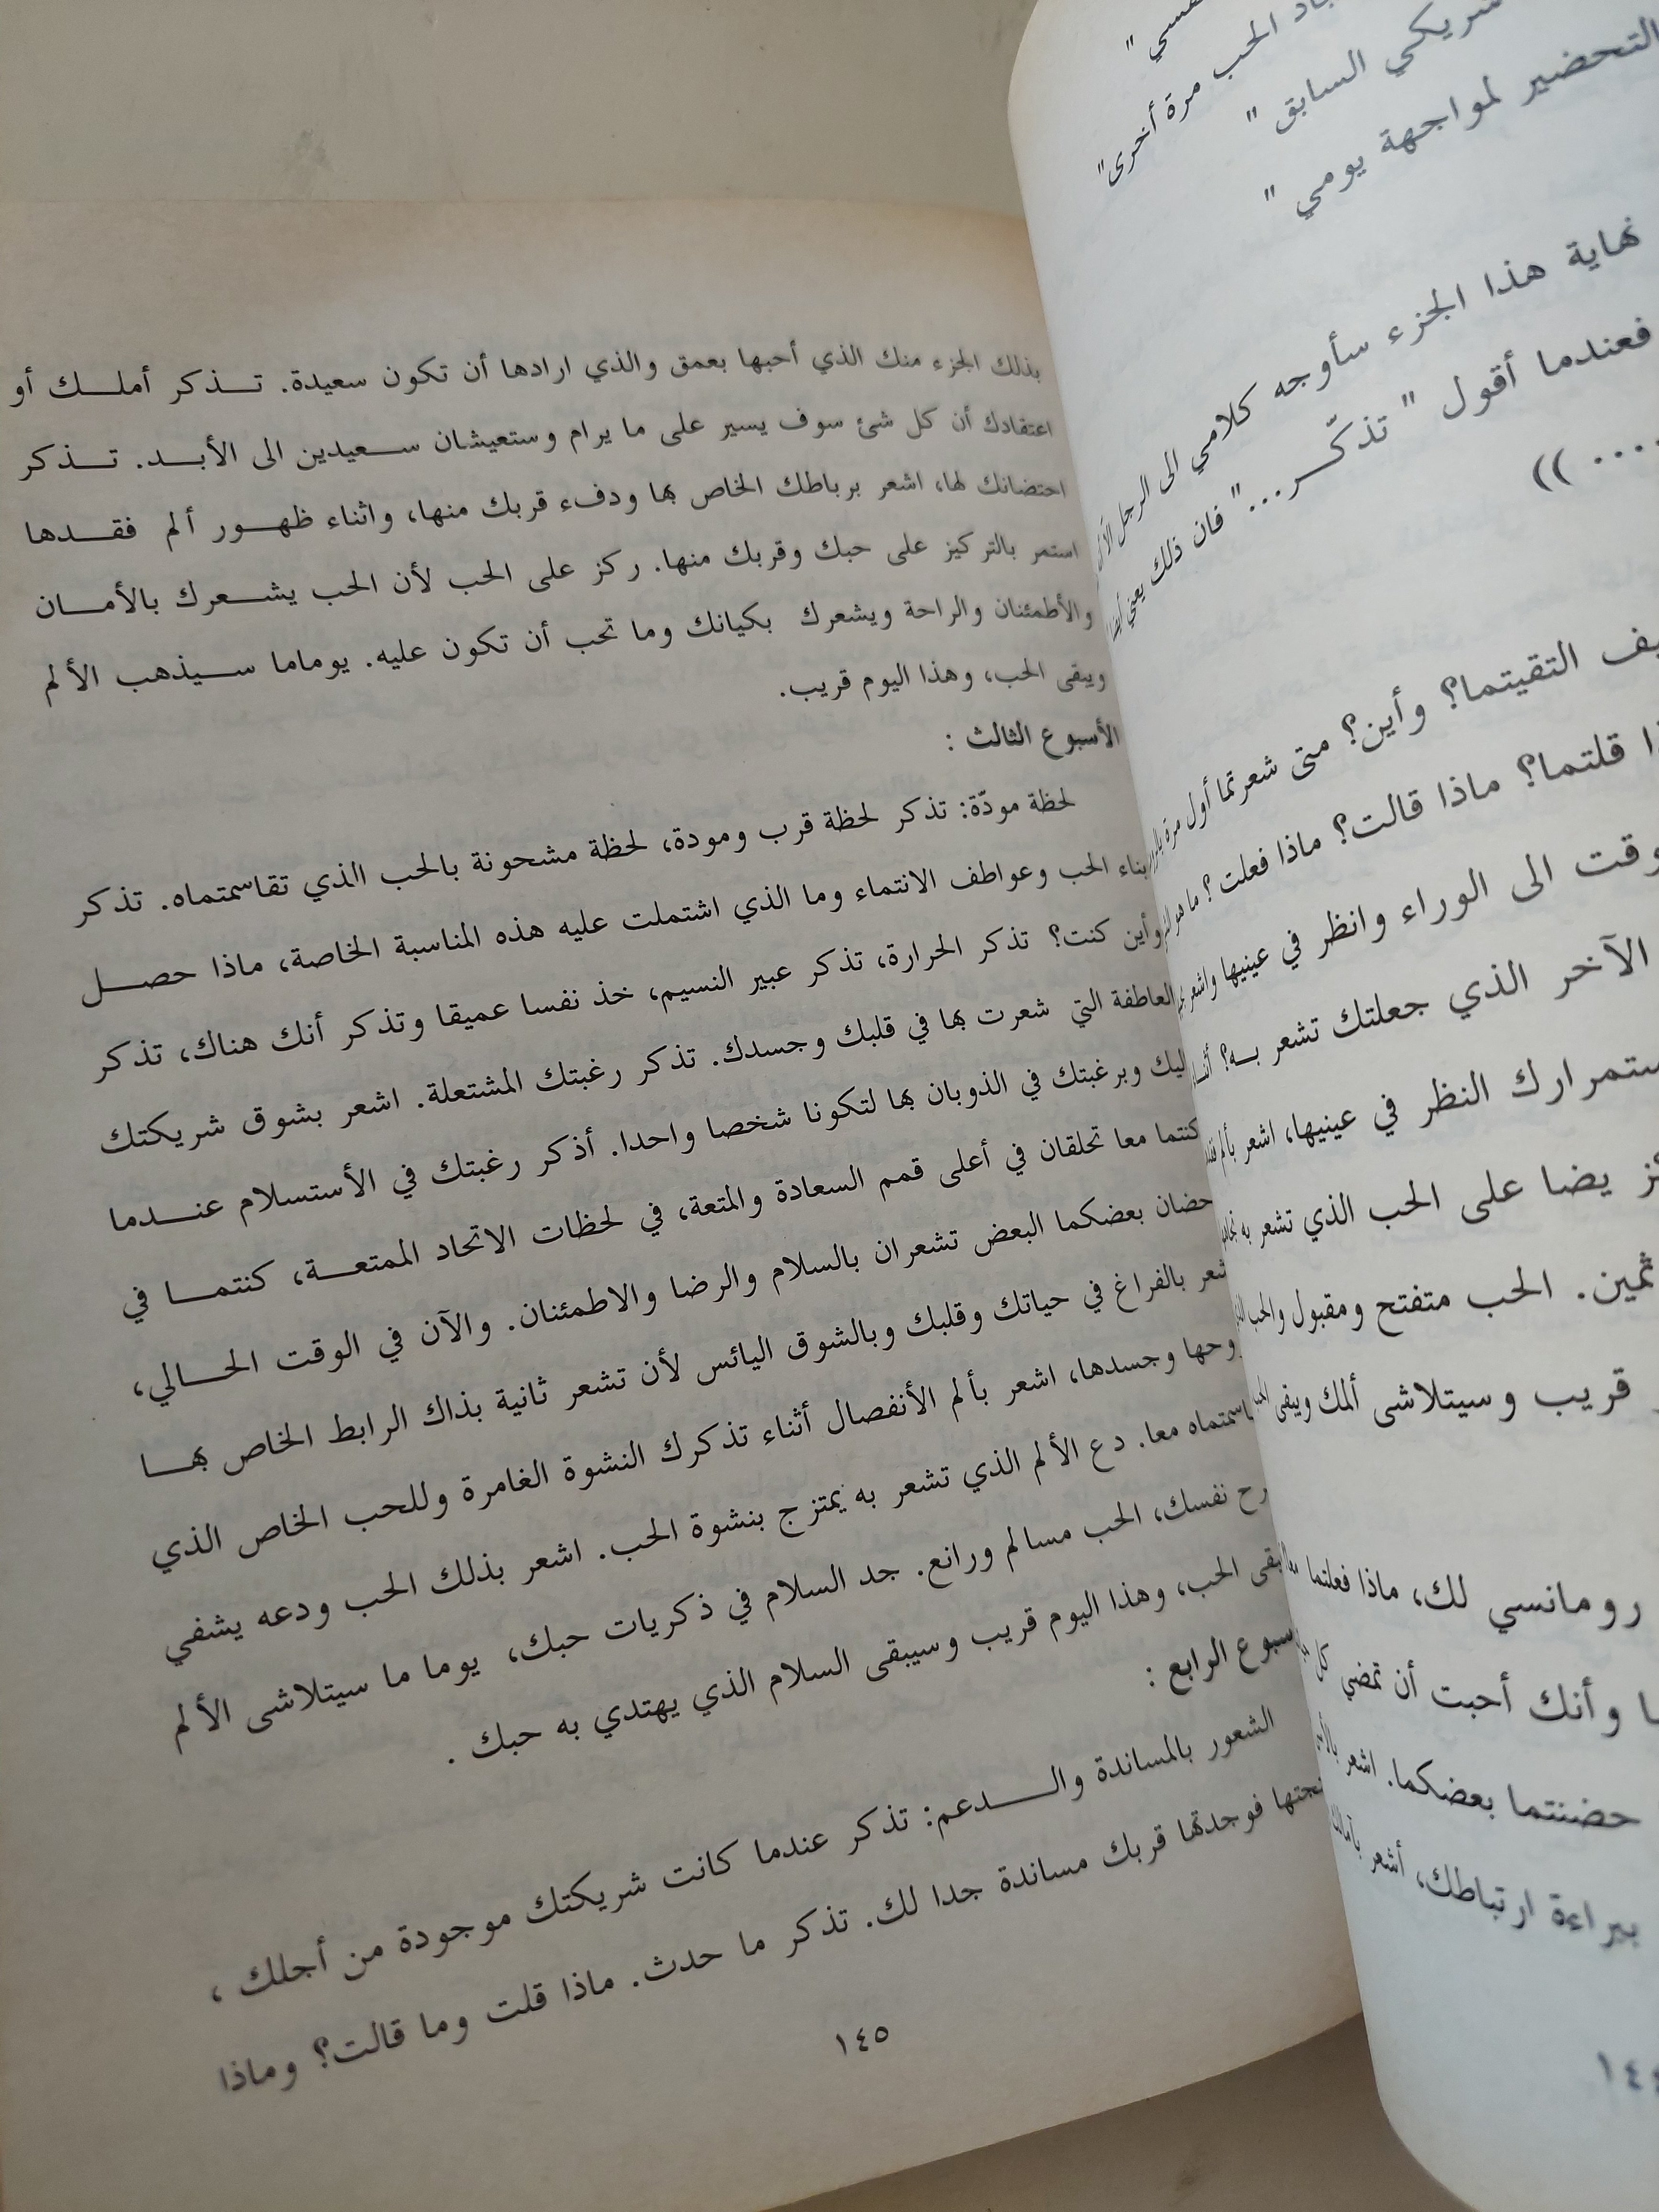 نفسي "
الحب مرة أخرى"
شريكي السابق "
التحضير لمواجهة يومي "
نهاية هذا الجزء سأوجه كلامي الى الرجل
فعندما أقول " تذكّــر..." فان ذلك يعني
.... ))
التقيتما؟ وأين؟ متى شعرتما أول مرة
قلتما؟ ماذا قالت؟ ماذا فعلت؟ ما هو
الى الوراء وانظر في عينيها واشعر
الآخر الذي جعلتك تشعر بــه؟
النظر في عينيها، اشعر بألم
يضا على الحب الذي تشعر به
ثمين. الحب متفتح ومقبول والحب
قريب وسيتلاشى ألمك ويبقى الحب
رومانسي لك، ماذا فعلتما معا
وأنك أحبت أن تمضي كل
حضنتما بعضكما. اشعر
ببراءة ارتباطك، أشعر
١٤٤
بذلك الجزء منك الذي أحبها بعمق والذي ارادها أن تكون سعيدة. تــذكر أملــك أو
اعتقادك أن كل شئ سوف يسير على ما يرام وستعيشان ســعيدين الى الأبــد. تــذكر
احتضانك لها، اشعر برباطك الخاص بها ودفء قربك منها، واثناء ظهــور ألم فقــدها
استمر بالتركيز على حبك وقربك منها. ركز على الحب لأن الحب يشــعرك بالأمــان
والأطمئنان والراحة ويشعرك بكيانك وما تحب أن تكون عليه. يوماما ســيذهب الألم
ويبقى الحب، وهذا اليوم قريب.
الأسبوع الثالث :
لحظة مودّة: تذكر لحظة قرب ومودة، لحظة مشحونة بالحب الذي تقاسمتماه. تذكر
بناء الحب وعواطف الانتماء وما الذي اشتملت عليه هذه المناسبة الخاصة، ماذا حصــل
وأين كنت؟ تذكر الحرارة، تذكر عبير النسيم، خذ نفسا عميقا وتذكر أنك هناك، تذكر
العاطفة التي شعرت بها في قلبك وجسدك. تذكر رغبتك المشتعلة. اشعر بشوق شريكتك
ليك وبرغبتك في الذوبان بها لتكونا شخصا واحدا. أذكر رغبتك في الأستسلام عنــدما
كنتما معا تحلقان في أعلى قمم السعادة والمتعة، في لحظات الاتحاد الممتعــة، كنتمــا في
حضان بعضكما البعض تشعران بالسلام والرضا والاطمئنان. والآن في الوقت الحــالي،
شعر بالفراغ في حياتك وقلبك وبالشوق اليائس لأن تشعر ثانية بذاك الرابط الخاص بهــا
وحها وجسدها، اشعر بألم الأنفصال أثناء تذكرك النشوة الغامرة وللحب الخاص الذي
اسمتماه معا. دع الألم الذي تشعر به يمتزج بنشوة الحب. اشعر بذلك الحب ودعه يشفي
رح نفسك، الحب مسالم ورائع. جد السلام في ذكريات حبك، يوما ما سيتلاشى الألم
بقى الحب، وهذا اليوم قريب وسيبقى السلام الذي يهتدي به حبك .
سبوع الرابع :
الشعور بالمساندة والــــدعم: تذكر عندما كانت شريكتك موجودة من أجلك ،
فوجدتها قربك مساندة جدا لك. تذكر ما حدث. ماذا قلت وما قالت؟ وماذا
١٤٥